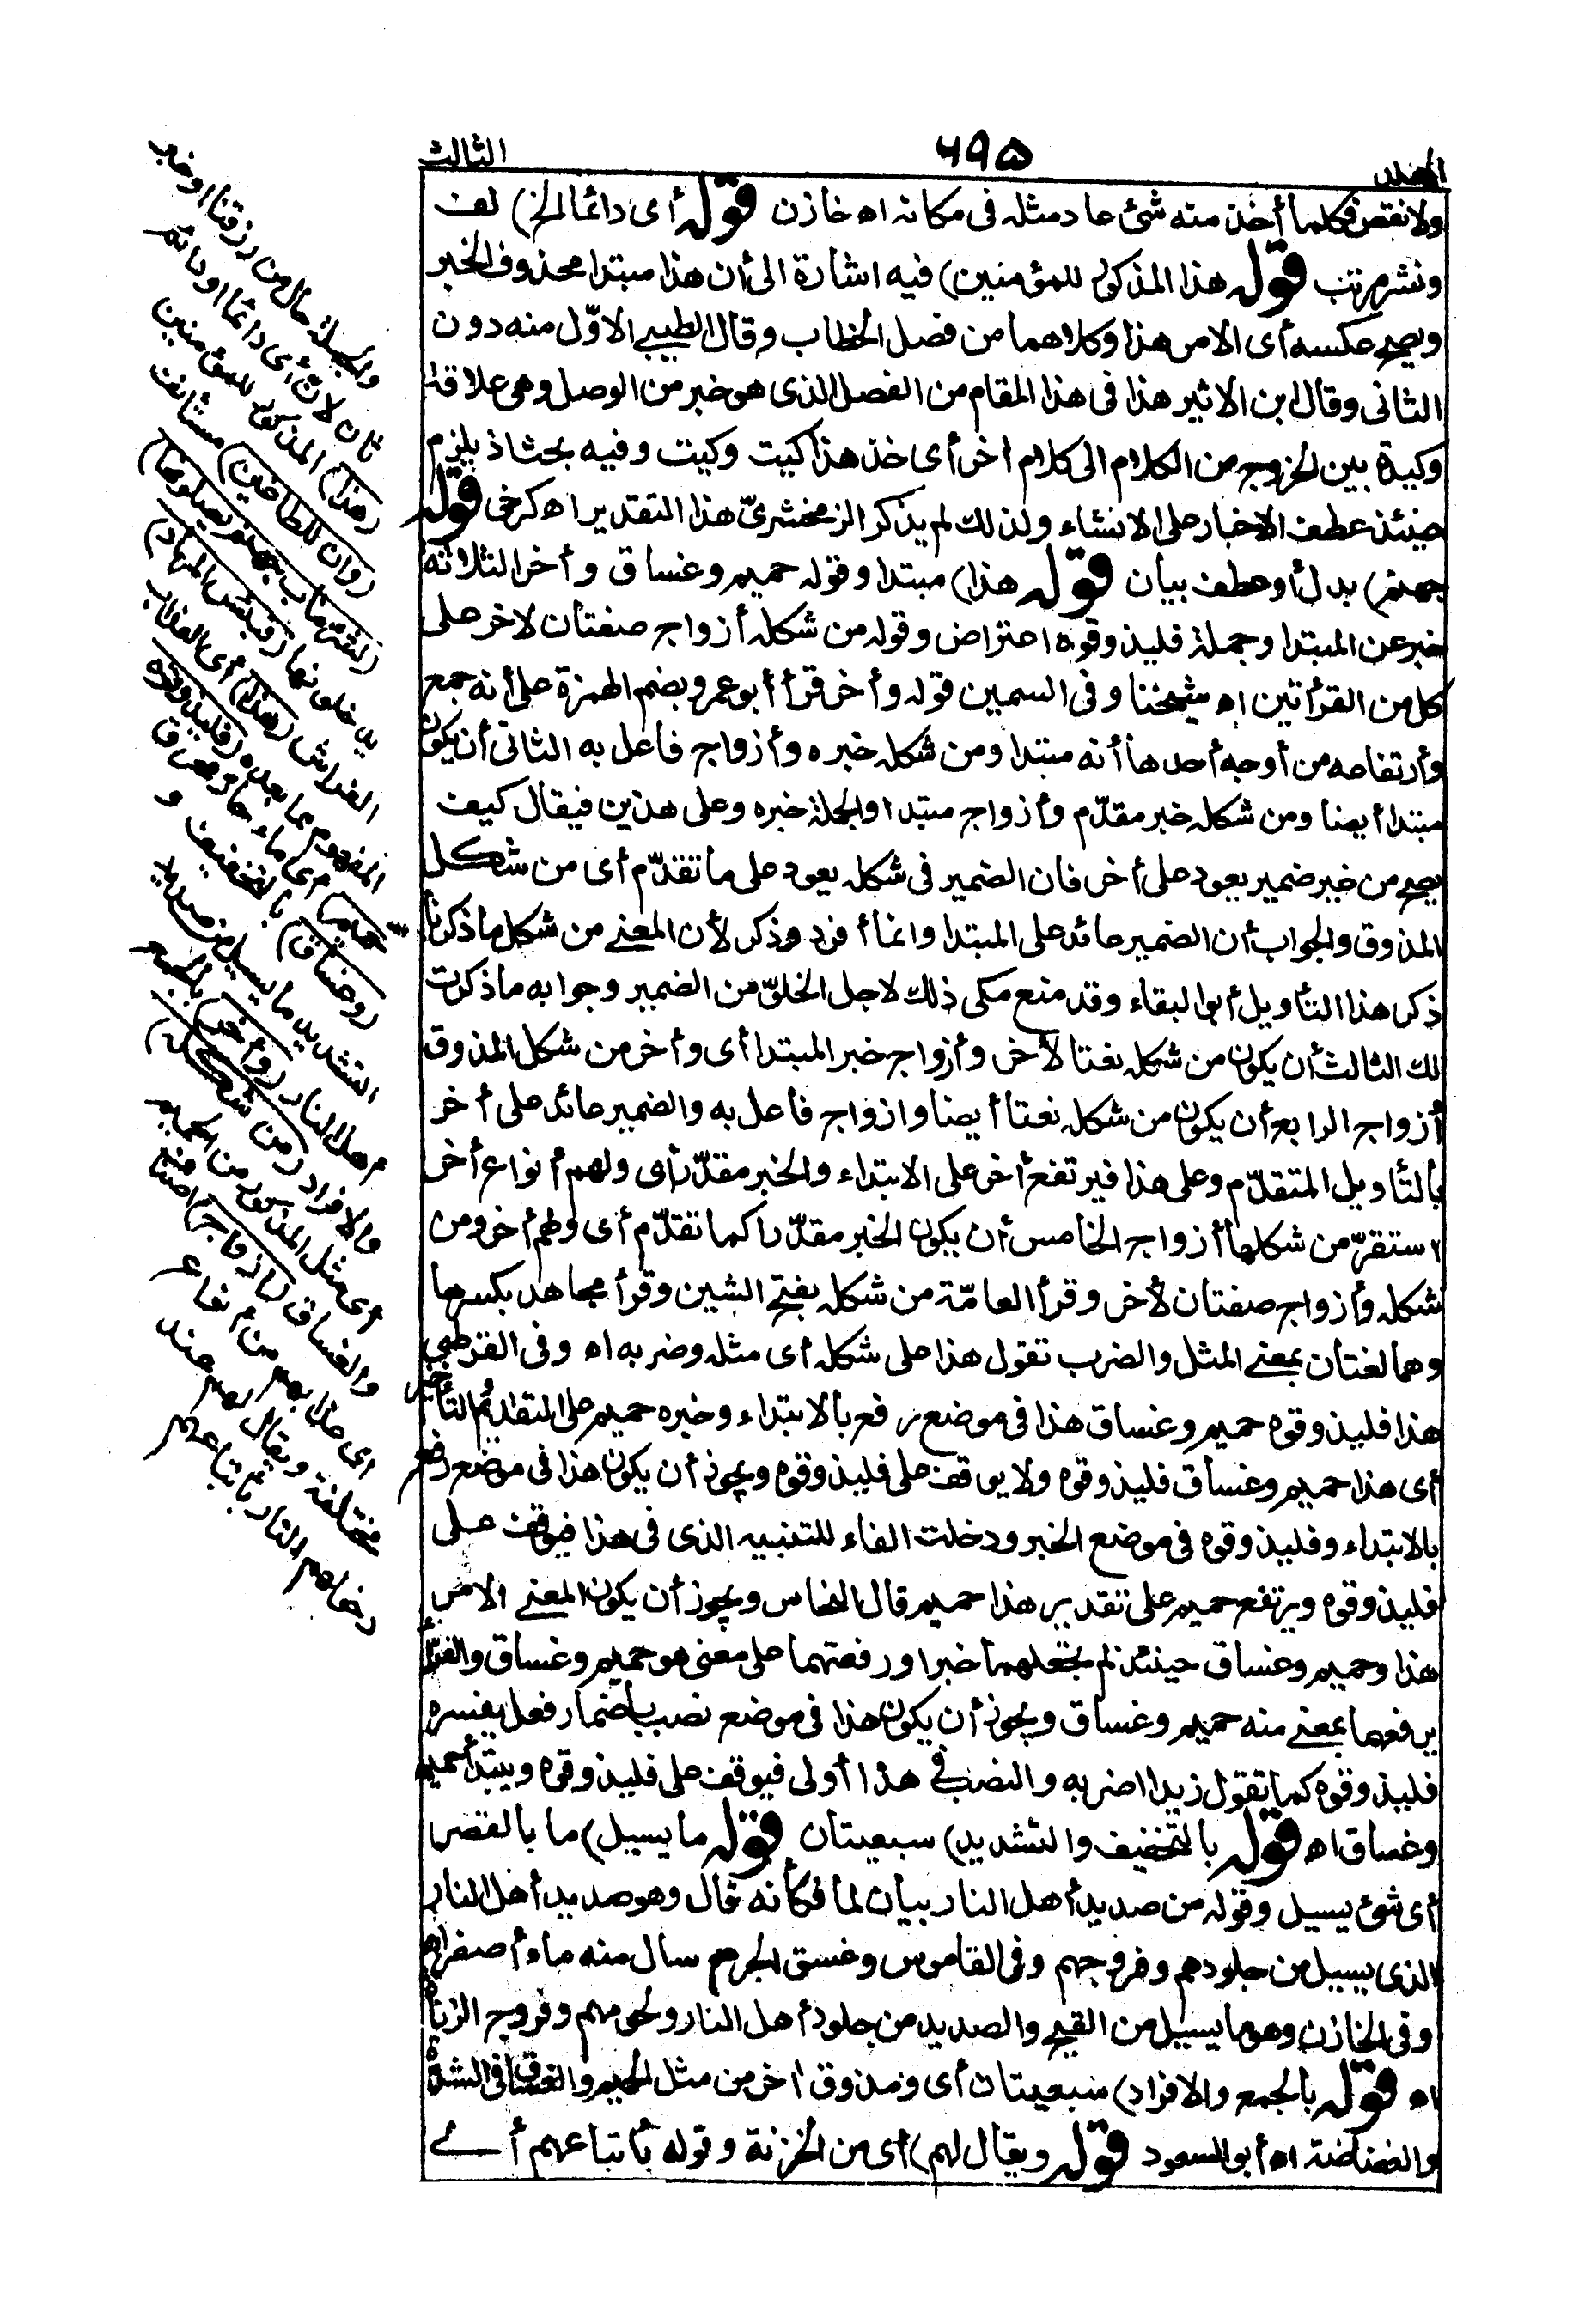 المجلد
٦٩٥
الثالث
ولا نقص فكلما أخذ منه شئ عاد مثله فى مكانه اه خازن قوله أى دائما الخ) لف
ونشر مرتب قوله هذا المذكور للمؤمنين) فيه اشارة الى أن هذا مبتدا محذوف الخبر
ويصح عكسه أى الامر هذا وكلاهما من فصل الخطاب وقال الطيبى الاوّل منه دون
الثانى وقال ابن الاثير هذا فى هذا المقام من الفصل الذى هو خبر من الوصل وهى علاقة
وكيدة بين الخروج من الكلام الى كلام اخر أى خذ هذا كيت وكيت وفيه بحث اذ يلزم
حينئذ عطف الاخبار على الانشاء ولذلك لم يذكر الزمخشرىّ هذا التقدير اه كرخى قوله
جهنم) بدل أو عطف بيان قوله هذا) مبتدا وقوله حميم وغساق وأخر الثلاثة
خبر عن المبتدا وجملة فليذوقوه اعتراض وقوله من شكله أزواج صفتان لاخر على
كل من القرأتين اه شيخنا وفى السمين قوله وأخر قرأ أبو عمرو بضم الهمزة على أنه جمع
وأرتفاعه من أوجه أحدها أنه مبتدا ومن شكله خبره وأزواج فاعل به الثانى أن يكون
مبتدا أيضا ومن شكله خبر مقدّم وأزواج مبتدا والجملة خبره وعلى هذين فيقال كيف
يصح من غير ضمير يعود على أخر فان الضمير فى شكله يعود على ما تقدّم أى من شكل
المذوق والجواب أن الضمير عائد على المبتدا وانما أفرد وذكر لأن المعنى من شكل ما ذكرنا
ذكر هذا التأويل أبو البقاء وقد منع مكى ذلك لاجل الخلوّ من الضمير وجوابه ما ذكرت
لك الثالث أن يكون من شكله نعتا لأخر وأزواج خبر المبتدا أى وأخر من شكل المذوق
أزواج الرابع أن يكون من شكله نعتا أيضا وازواج فاعل به والضمير عائد على أخر
بالتأويل المتقدّم وعلى هذا فيرتفع أخر على الابتداء والخبر مقدّر أى ولهم أنواع أخر
استقرّ من شكلها أزواج الخامس أن يكون الخبر مقدّرا كما تقدّم أى ولهم أخر ومن
شكله وأزواج صفتان لأخر وقرأ العامّة من شكله بفتح الشين وقرأ مجاهد بكسرها
وهما لغتان بمعنى المثل والضرب تقول هذا على شكله أى مثله وضربه اه وفى القرطبى
هذا فليذوقوه حميم وغساق هذا فى موضع رفع بالابتداء وخبره حميم على التقديم والتأخير
أى هذا حميم وغساق فليذوقوه ولا يوقف على فليذوقوه ويجوز أن يكون هذا فى موضع رفع
بالابتداء وفليذوقوه فى موضع الخبر ودخلت الفاء للتنبيه الذى فى هذا فيوقف على
فليذوقوه ويرتفع حميم على تقدير هذا حميم قال النحاس ويجوز أن يكون المعنى الامر
هذا وحميم وغساق حينئذ لم تجعلهما خبرا ورفعتهما على معنى هو حميم وغساق والفرّاء
يرفعهما بمعنى منه حميم وغساق ويجوز أن يكون هذا فى موضع نصب بأضمار فعل يفسره
فليذوقوه كما تقول زيدا اضربه والنصب فى هذا أولى فيوقف على فليذوقوه ويبتدأ حميم
وغساق اه قوله بالتخفيف والتشديد) سبعيتان قوله ما يسيل) ما بالقصر
أى شئ يسيل وقوله من صديد أهل النار بيان لما فكأنه قال وهو صديد أهل النار
الذى يسيل من جلودهم وفروجهم وفى القاموس وغسق الجرح سال منه ماء أصفر اه
وفى الخازن وهو ما يسيل من القيح والصديد من جلود أهل النار ولحومهم وفروج الزناة
اه قوله بالجمع والافراد) سبعيتان أى ومذوق اخر من مثل الحميم والغساق فى الشدة
والفضاضة اه أبو السعود قوله ويقال لهم) أى من الخزنة وقوله بأتباعهم أى
والجملة حال من رزقنا او خبر
ثان لان أى دائما او دائم
(هذا) المذكور للمؤمنين
(وان للطاغين) مستانف
(لشر مآب جهنم يصلونها)
يدخلونها (فبئس المهاد)
الفراش (هذا) أى العذاب
المفهوم مما بعده (فليذوقوه
حميم) أى ماء حار محرق
(وغساق) بالتخفيف و
التشديد ما يسيل من صديد
اهل النار (وأخر) بالجمع
والافراد (من شكله)
أى مثل المذكور من الحميم
والغساق (ازواج) اصناف
اى عذابهم من أنواع
مختلفة ويقال لهم عند
دخولهم النار بأتباعهم